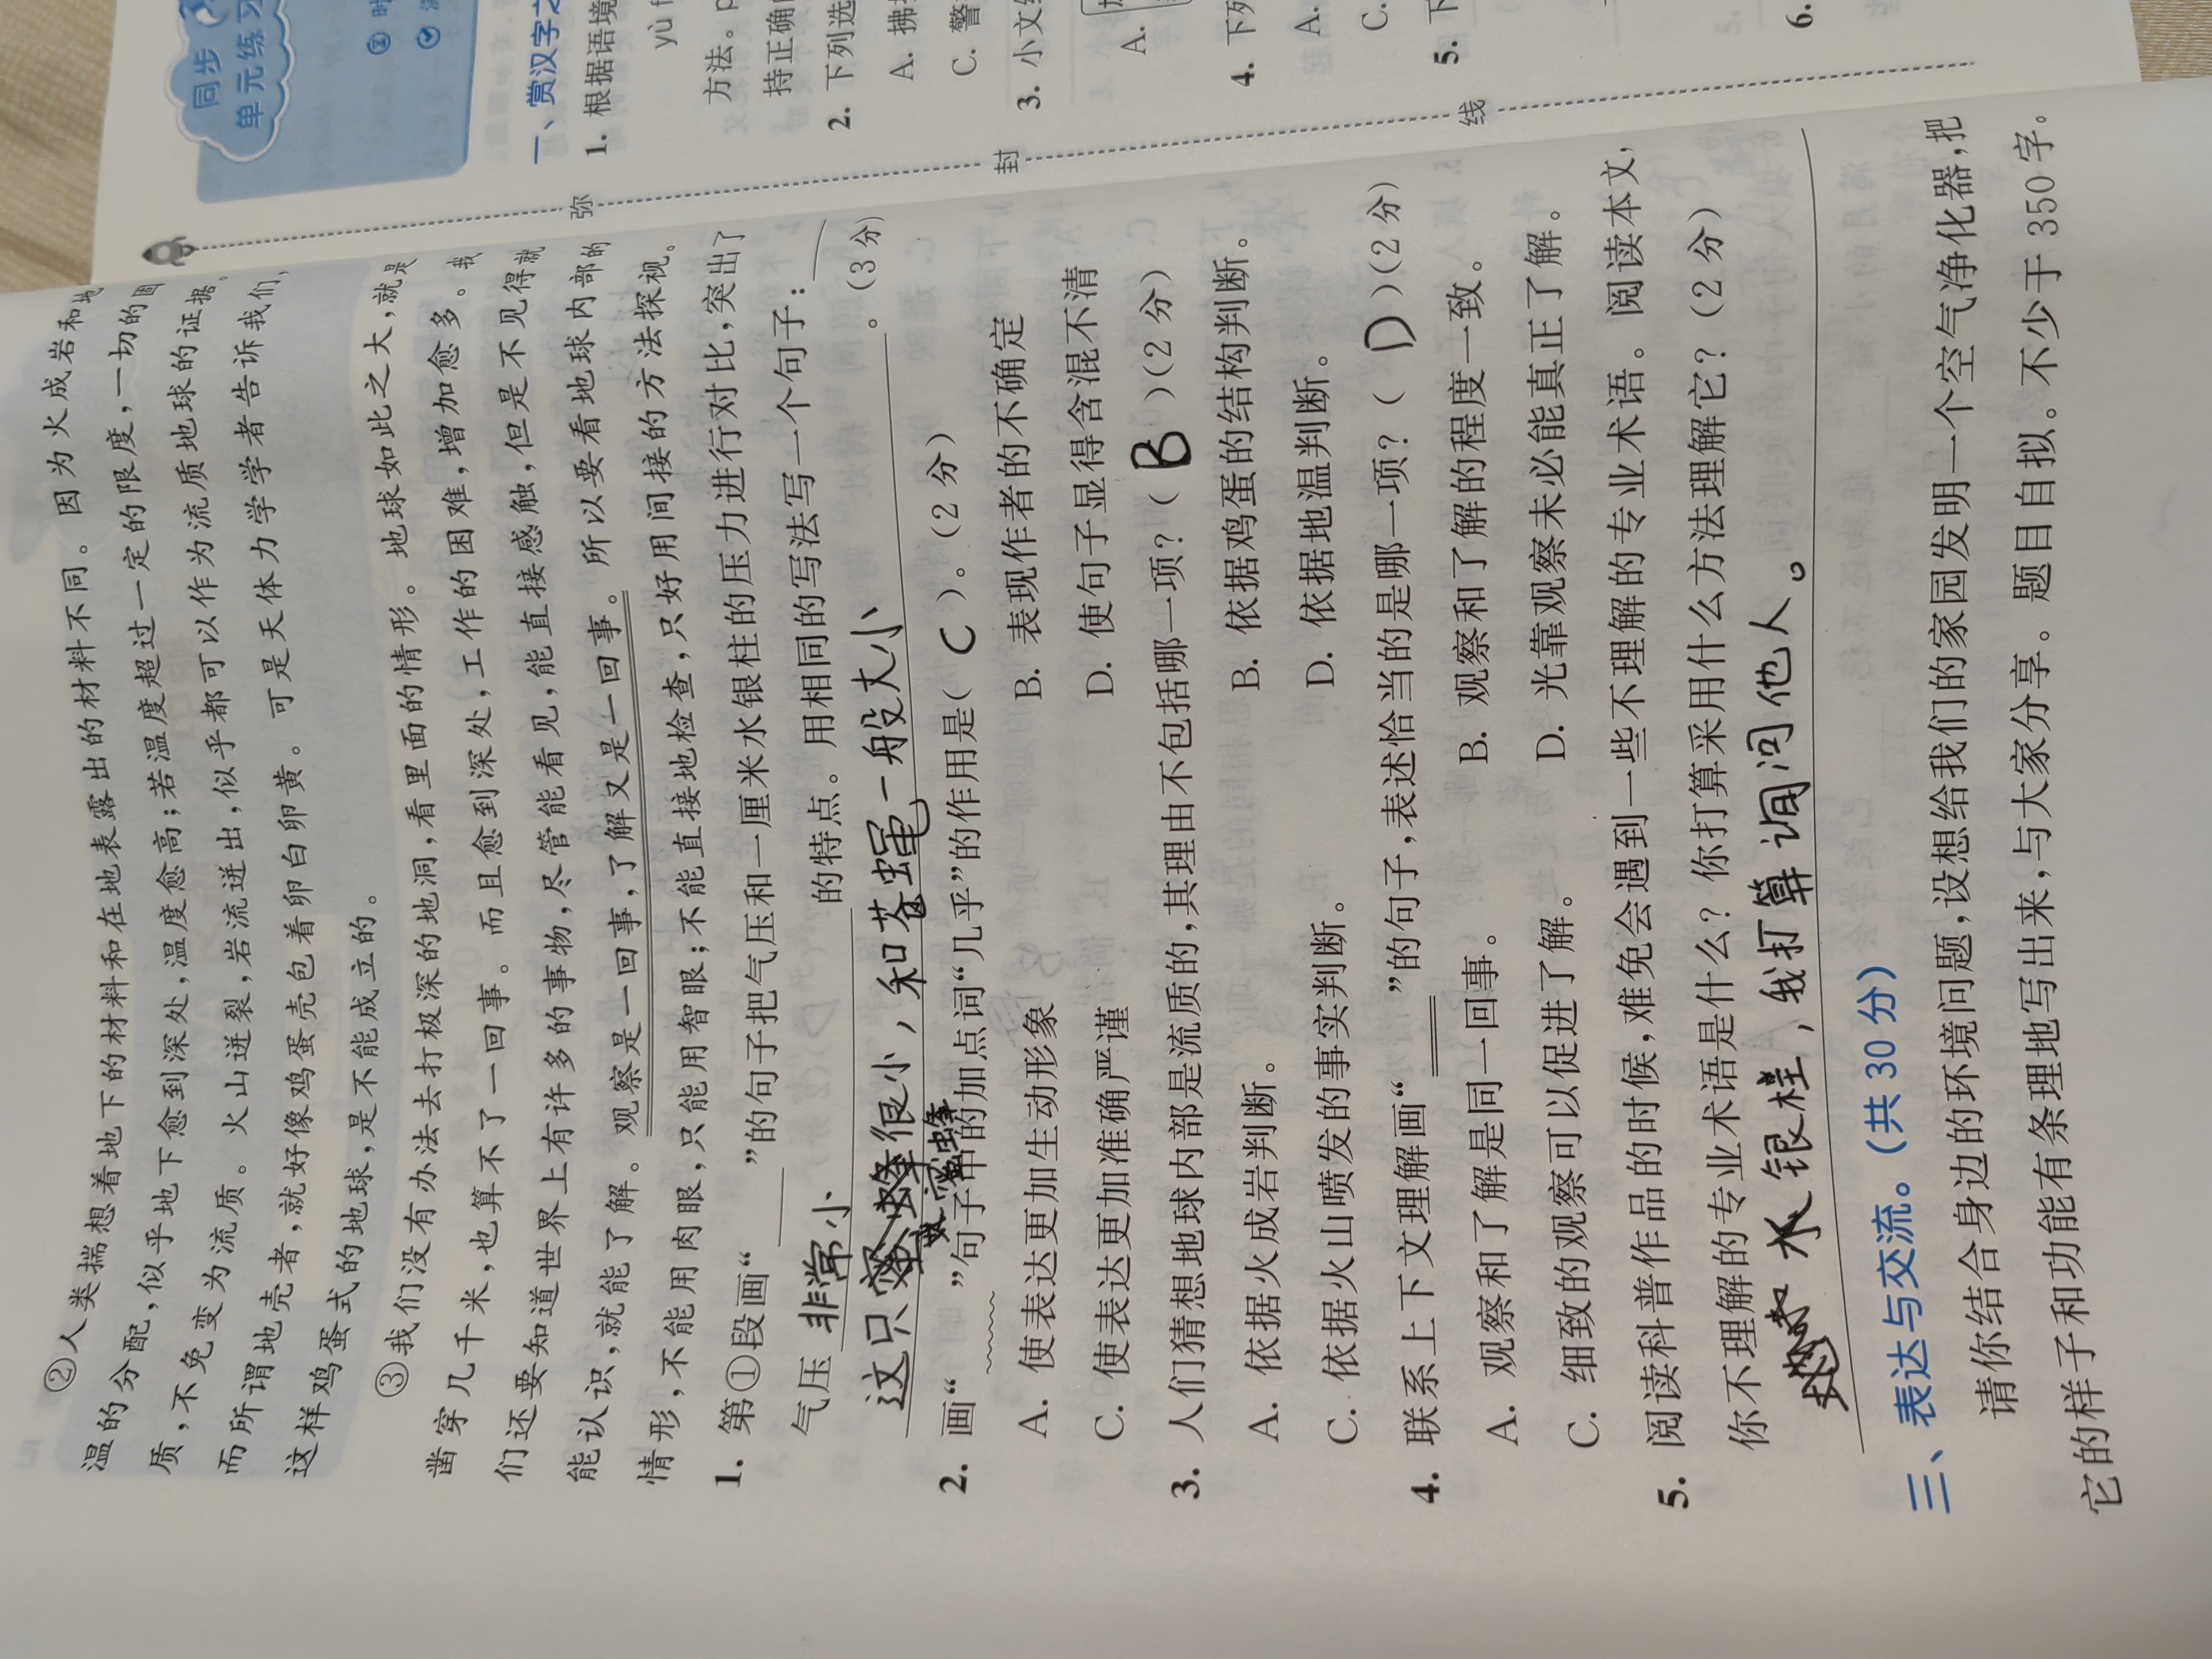 ②人类揣想着地下的材料和在地表露出的材料不同。因为火成岩和地
温的分配,似乎地下愈到深处,温度愈高;若温度超过一定的限度,一切的固
质,不免变为流质。火山迸裂,岩流迸出,似乎都可以作为流质地球的证据,
而所谓地壳者,就好像鸡蛋壳包着卵白卵黄。可是天体力学学者告诉我们,
这样鸡蛋式的地球,是不能成立的。
③我们没有办法去打极深的地洞,看里面的情形。地球如此之大,就是
凿穿几千米,也算不了一回事。而且愈到深处,工作的困难,增加愈多。我
们还要知道世界上有许多的事物,尽管能看见,能直接感触,但是不见得就
能认识,就能了解。观察是一回事,了解又是一回事。所以要看地球内部的
情形,不能用肉眼,只能用智眼;不能直接地检查,只好用间接的方法探视。
1. 第①段画“____”的句子把气压和一厘米水银柱的压力进行对比,突出了
气压 非常小 的特点。用相同的写法写一个句子:
这只蜜蜂很小,和苍蝇一般大小。(3分)
蜜蜂
2. 画“____”句子中的加点词“几乎”的作用是( C )。(2分)
A. 使表达更加生动形象 B. 表现作者的不确定
C. 使表达更加准确严谨 D. 使句子显得含混不清
3. 人们猜想地球内部是流质的,其理由不包括哪一项?( B )(2分)
A. 依据火成岩判断。 B. 依据鸡蛋的结构判断。
C. 依据火山喷发的事实判断。 D. 依据地温判断。
4. 联系上下文理解画“____”的句子,表述恰当的是哪一项?( D )(2分)
A. 观察和了解是同一回事。 B. 观察和了解的程度一致。
C. 细致的观察可以促进了解。 D. 光靠观察未必能真正了解。
5. 阅读科普作品的时候,难免会遇到一些不理解的专业术语。阅读本文,
你不理解的专业术语是什么?你打算采用什么方法理解它?(2分)
水银柱,我打算询问他人。
三、表达与交流。(共30分)
请你结合身边的环境问题,设想给我们的家园发明一个空气净化器,把
它的样子和功能有条理地写出来,与大家分享。题目自拟。不少于350字。
弥
封
线
同步
单元练习
②时
一、赏汉字之
1. 根据语境
yù f
方法。p
持正确
2. 下列选
A. 拂
C. 警
3. 小文
A.
4. 下列
A.
C.
5. 下
6.